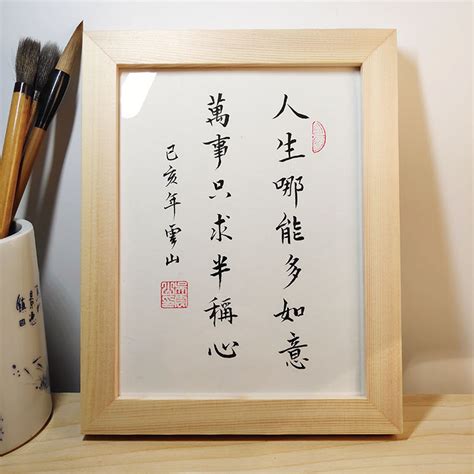 人生哪能多如意
萬事只求半稱心
己亥年雲山